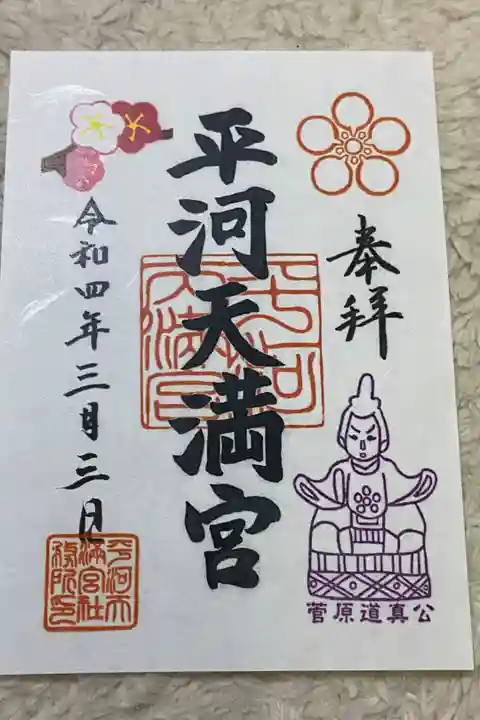 奉拝
菅原道真公
平河天満宮
平河天満宮
令和四年三月三日
平河天
満宮社
務所印